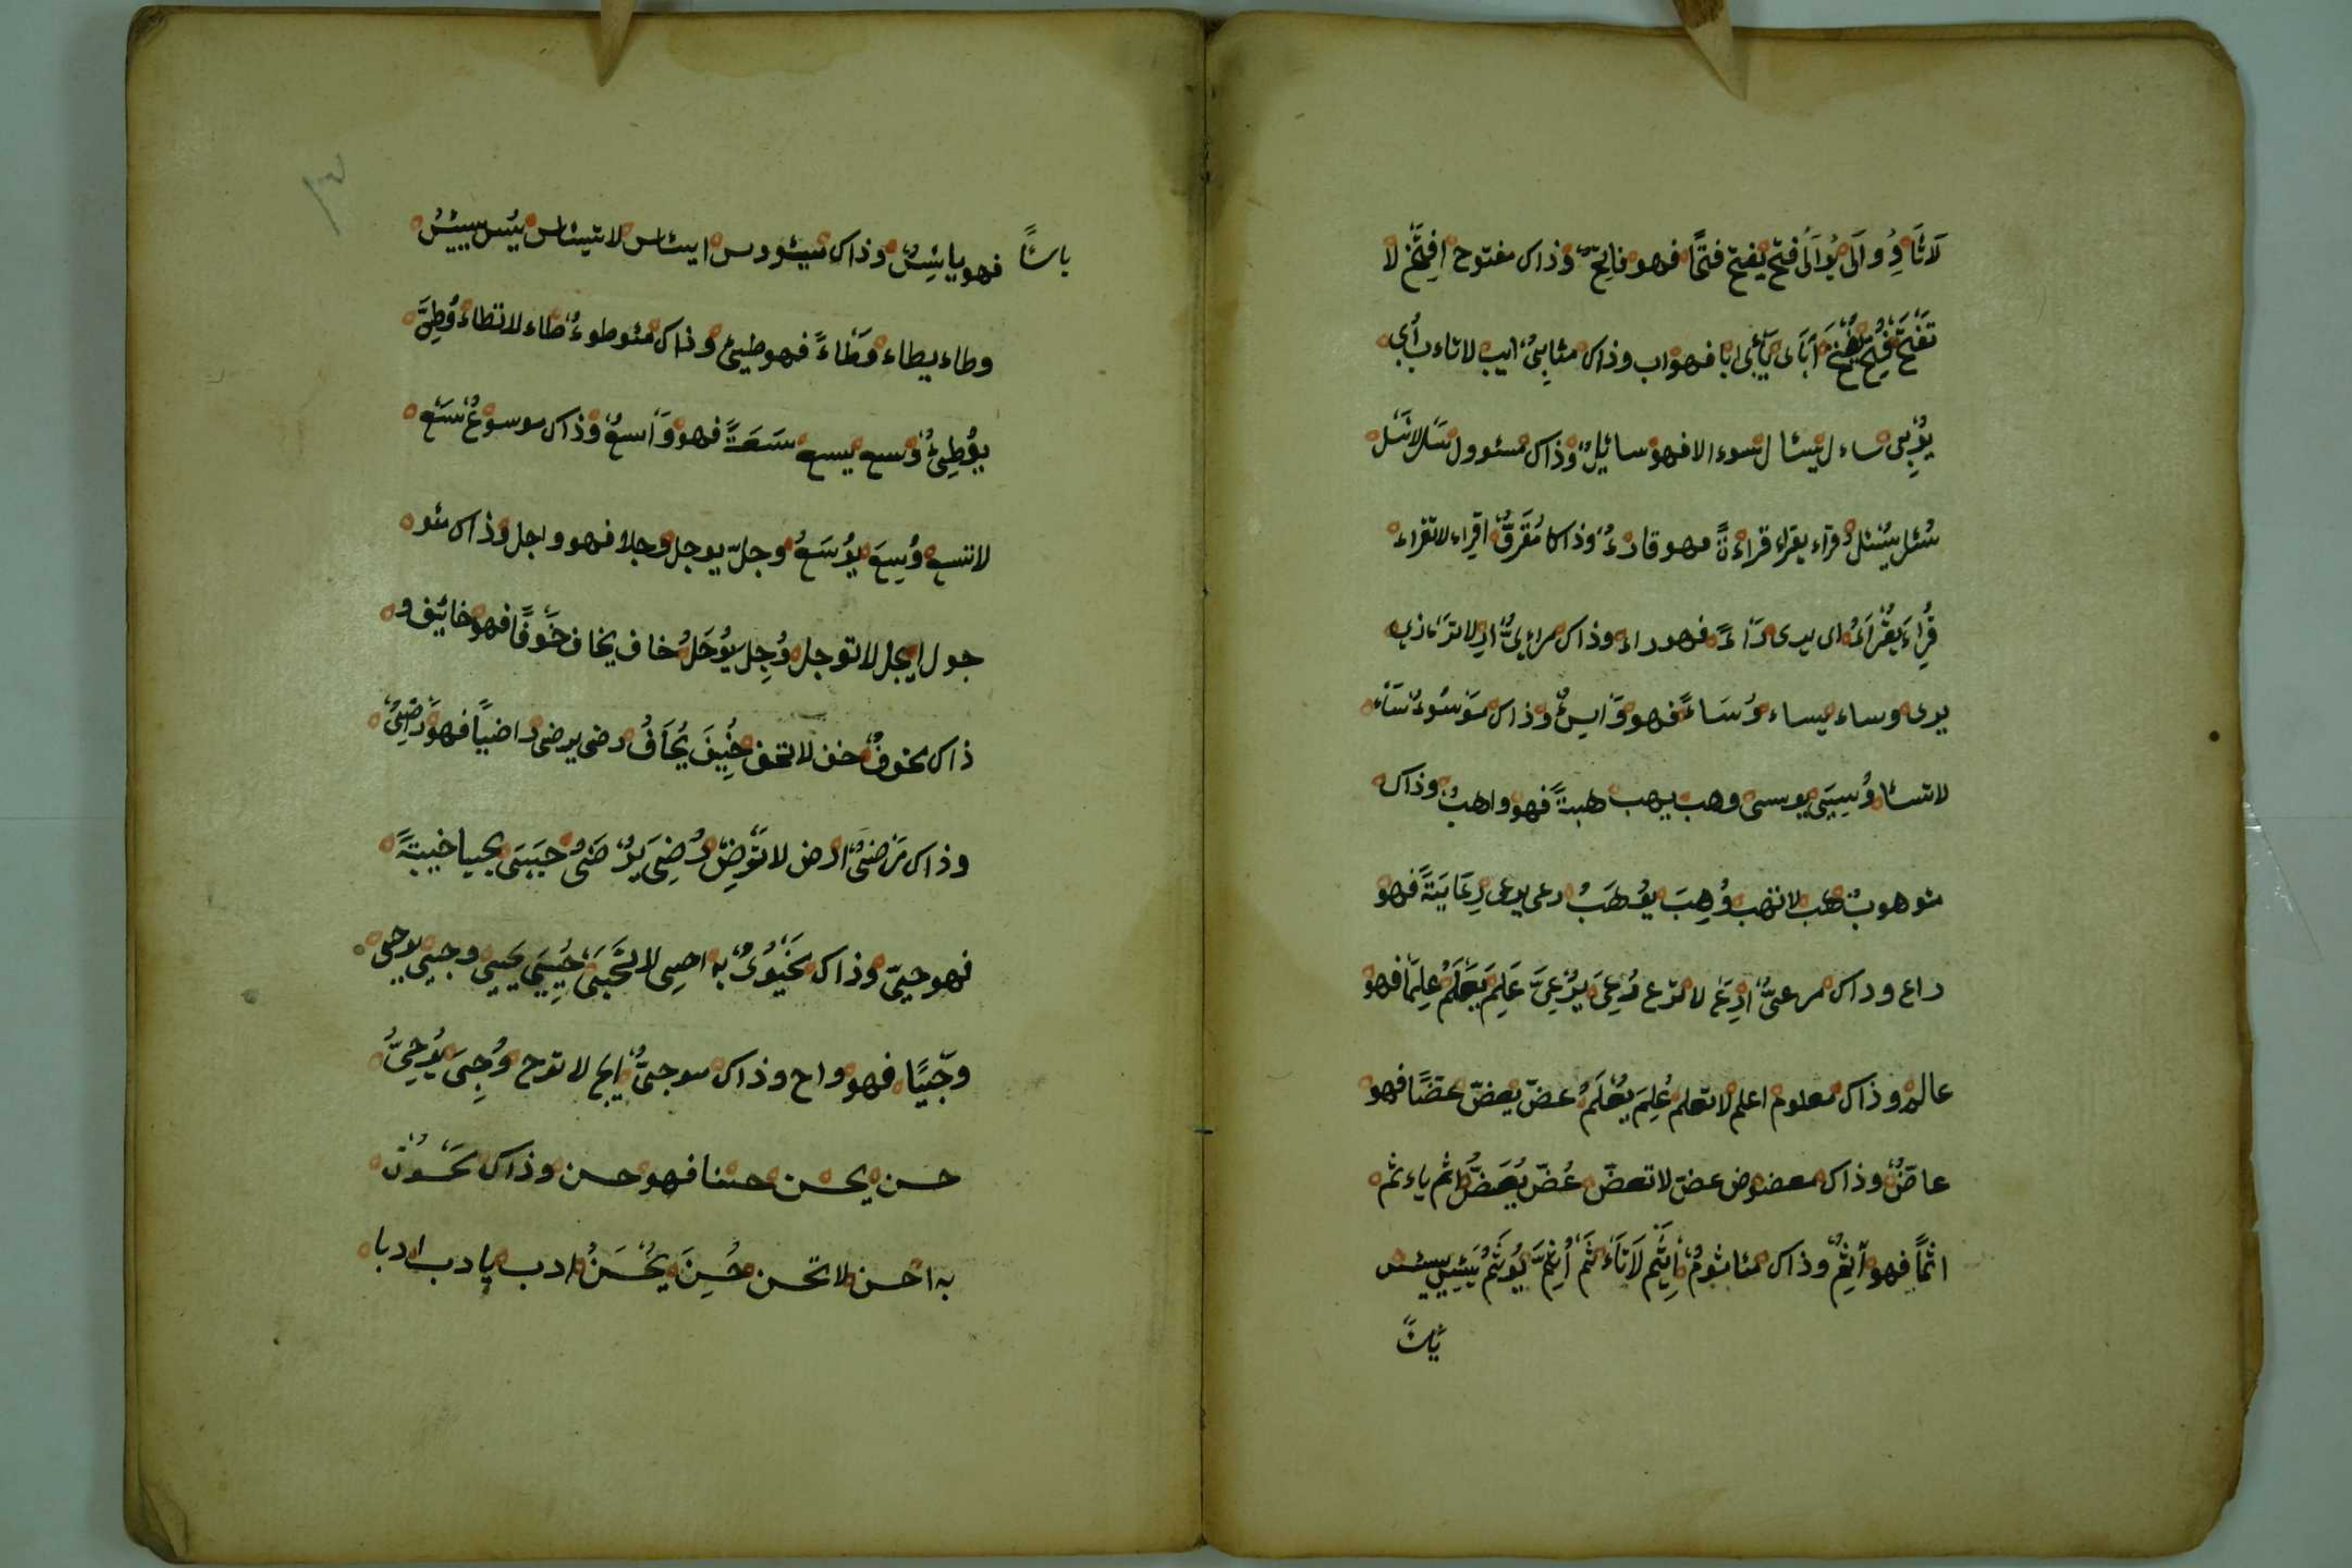 لَا تَأَوُ وُ وَلَى يُوَلَى فتح يفتح فتحًا فهو فاتِحٌ وذاك مفتوح افِتَح لا
تَفْتَح فُتِحَ يُفْتَحُ أَبَاى يَأْبى ابا فهو اب وذاك مئابِىٌ ايب لا تاءب أُبى
يُؤبى ساءل يسئال سوءالا فهو سائِلٌ وذاك مسئوول سَل لا تسَل
سُئل يُسْئل قراء يقراء قراءةً فهو قارءٌ وذاك مُقرَقٌ اقراء لا تقراء
قُرِاءَ يُقْرَاءُ راى يرى رَاءً فهو راء وذاك مراءىٌ
يرى وساء يساء وُسَاءً فهو وَايسٌ وذاك مَوْسُوءٌ سَاْء
لا تسئا وُسِيَى يوسى وهب يهب هبةً فهو واهبٌ وذاك
موهوب هَب لا تهب وُهِبَ يوُهَبُ رعى يرعى رِعَايَةً فهو
راع وذاك مرعىٌّ اِرْعَ لا ترع رُعِىَ يُرْعىَ عَلِمَ يَعْلَمُ عِلمًا فهو
عالم وذاك معلوم اعلم لا تعلم عُلِمَ يُعْلَمُ عضّ يعضّ عضًّا فهو
عاضٌّ وذاك معضوض عضّ لا تعضّ عُضّ يُعَضُّ اثم ياءثم
اثمًا فهو آثِمٌ وذاك مئاثومٌ اِيثَم لَا تَاَءْثَمْ اُثِمَ يُوثَمُ يَئِسَ ييئس
يَأسًا
ياسًا فهو يائِسٌ وذاك ميئودس ايئاس لا تيئاس يُئس ييئسُ
وطاء يطاء وَطَاءً فهو طيئ وذاك مئوطوءٌ طاء لا تطاء وُطِئَ
يوُطِئُ وسع يسع سَعَةً فهو وَاسعٌ وذاك موسوعٌ سَع
لا تسع وُسِعَ يوُسَعُ وجل يوجل وجلا فهو واجل وذاك مئو
جول ايجل لا توجل وُجِل يوُجَلُ خاف يخاف خَوفًا فهو خائيف و
ذاك مخوفٌ خف لا تخف خُيِفَ يُخَافُ رضى يرضى راضيًا فهو رَاضِىٌ
وذاك مَرَضىٌّ ارض لا تَرضِ رُضِىَ يُرْضَىُ حَيَى يحيا حَيّةً
فهو حيىّ وذاك مَحْيُوىٌ به احيى لا تَحْيَى حُيِىَ يحيى وجيى يوجى
وَجْيًا فهو واج وذاك موجىٌّ ايج لا توج وُجِىَ يُوجىُ
حسن يحسن حسنا فهو حسن وذاك مَحْسُوْنٌ
به احسن لا تحسن حُسِنَ يُحْسَنُ ادب يادب ادبا